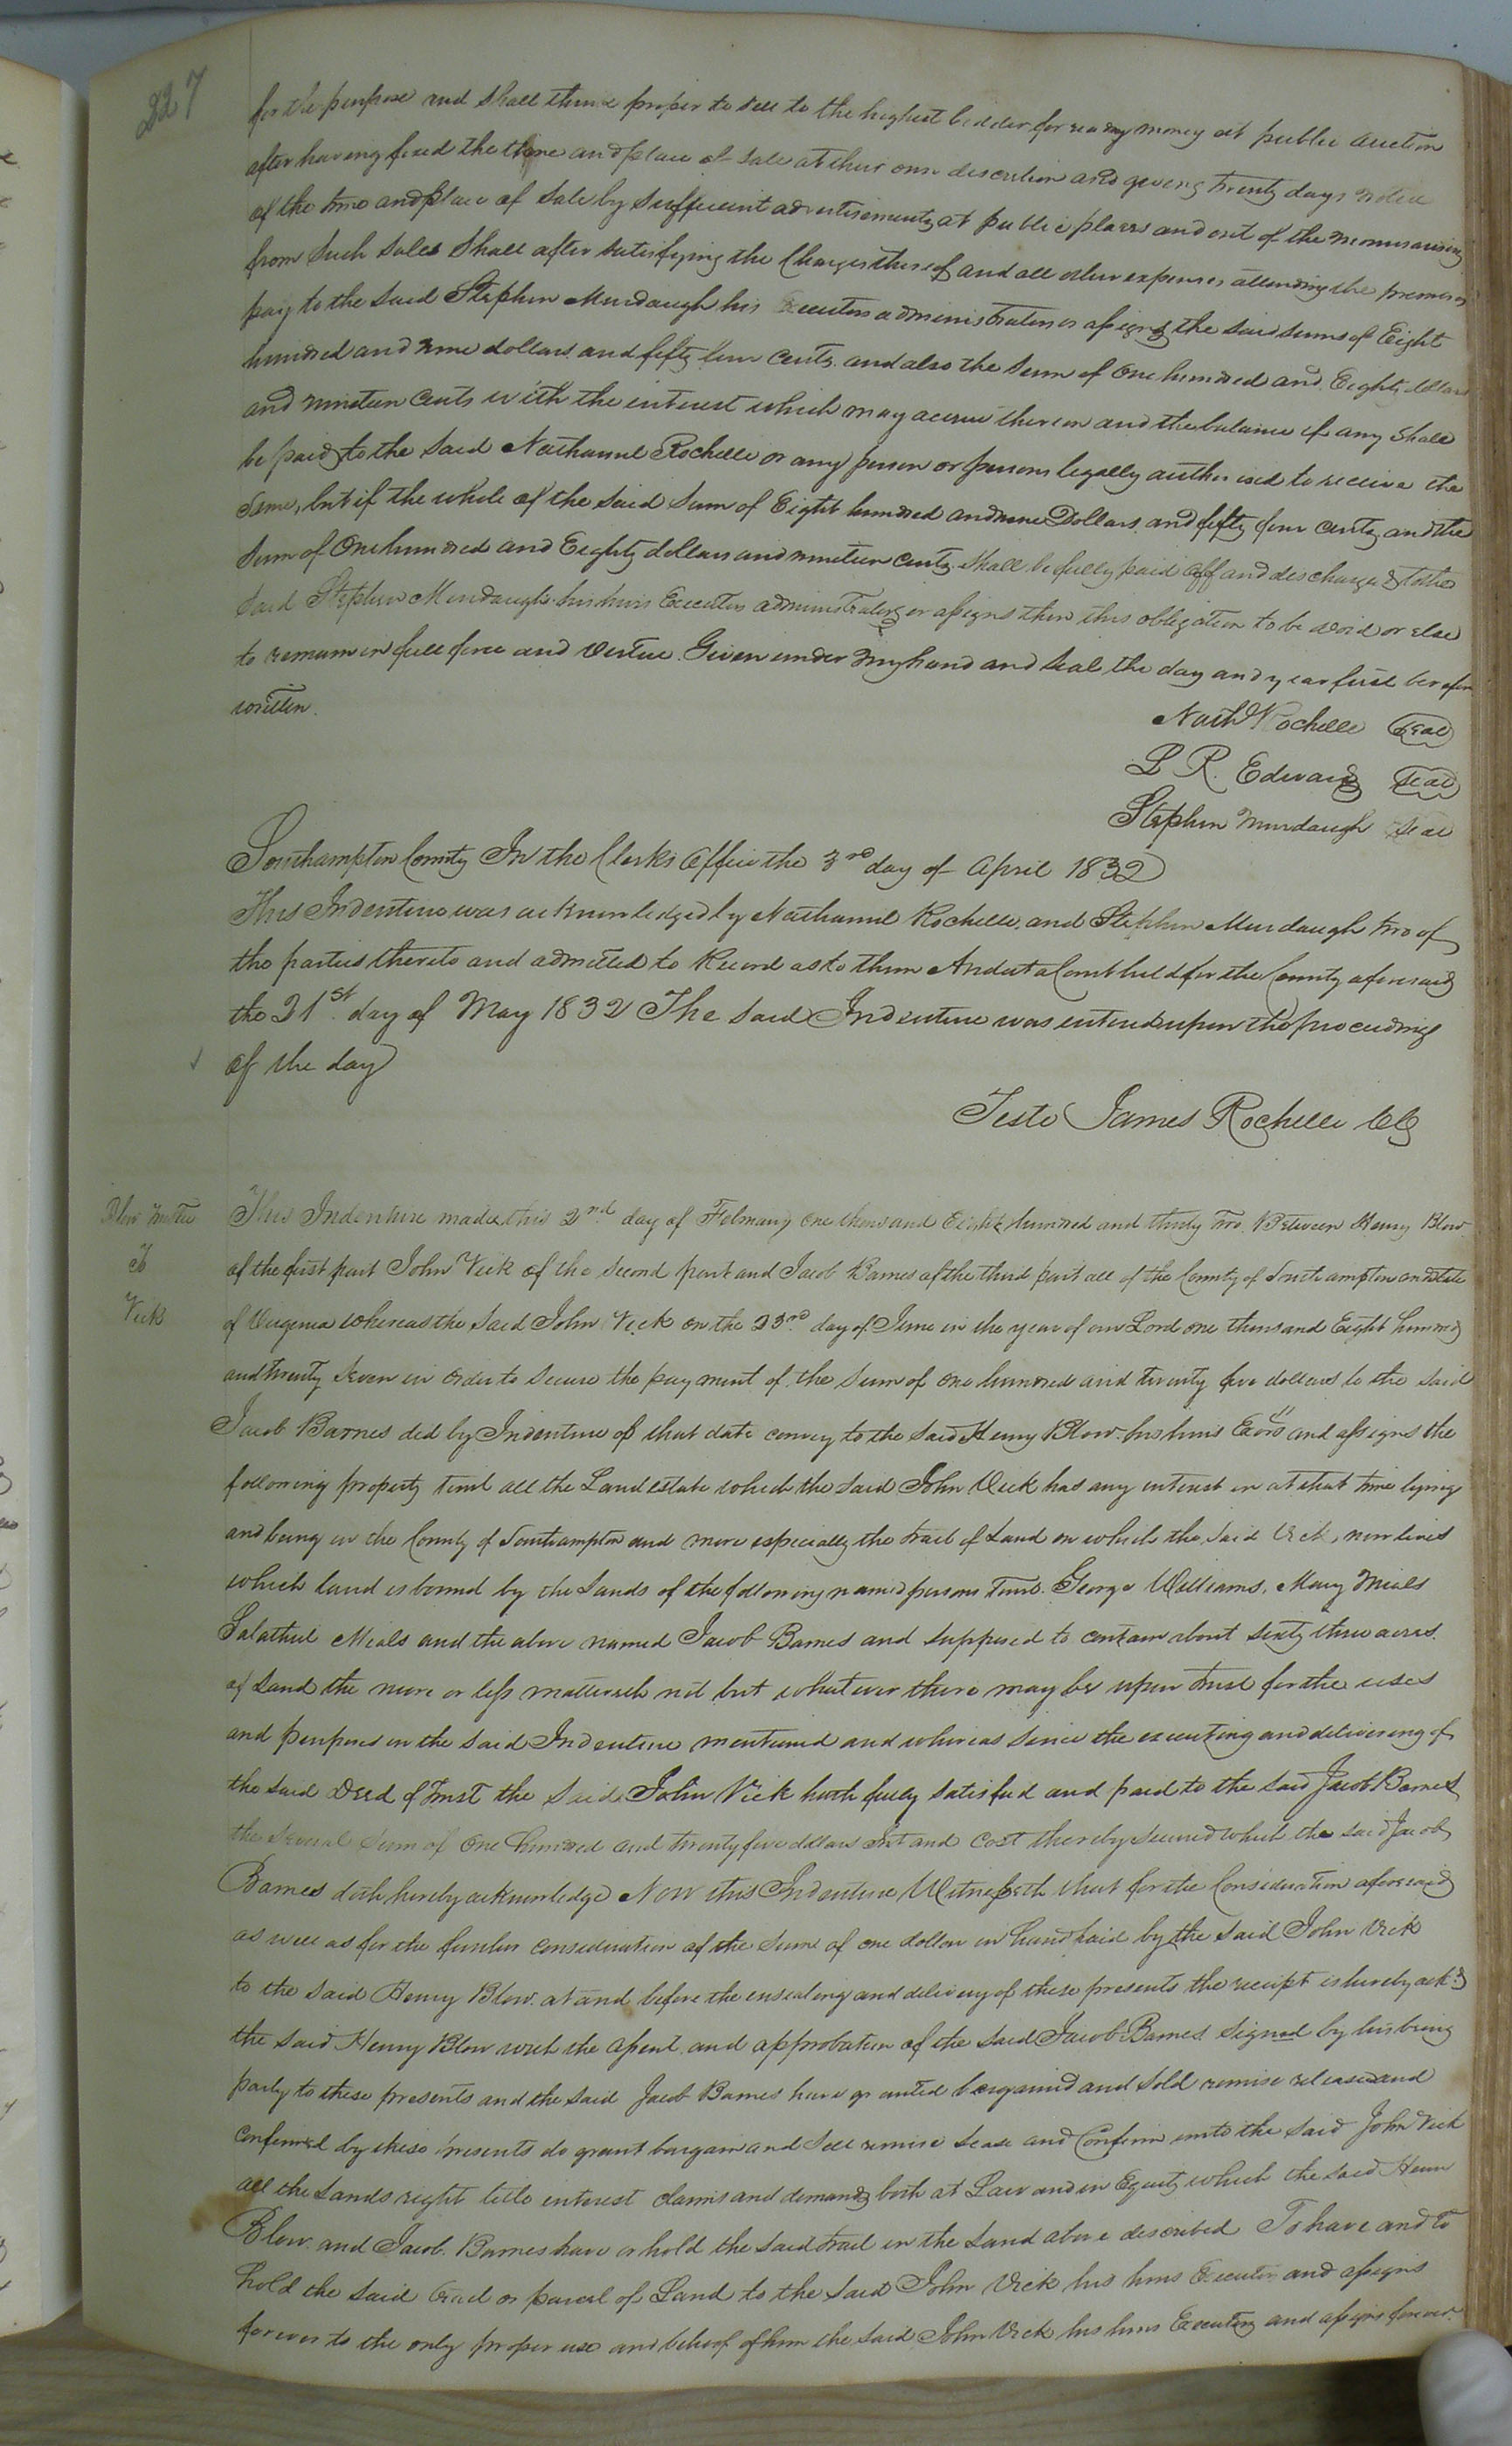 227
for the purpose and shall think proper to sell to the highest bidder for ready money at public auction
after having fixed the time and place of sale at their own discretion and giving twenty days notice
of the time and place of sale by sufficient advertisements at public places and out of the monies arising
from Such Sales Shall after satisfying the Charges thereof and all other expenses attending the premises
pay to the Said Stephen Murdaugh his Executors administrators or assigns the said sums of Eight
hundred and nine dollars and fifty four cents and also the Sum of One hundred and Eighty dollars
and nineteen Cents with the interest which may accrue thereon and the balance if any Shall
be paid to the Said Nathaniel Rochelle or any person or persons legally authorised to receive the
Same, but if the whole of the Said Sum of Eight hundred and nine Dollars and fifty four cents and the
Sum of One hundred and Eighty dollars and nineteen Cents Shall be fully paid off and discharged to the
Said Stephen Murdaugh his heirs Executors administrators or assigns then this obligation to be void or else
to remain in full force and Virtue. Given under my hand and Seal the day and year first before
written.
Nathl Rochelle Seal
L R. Edwards Seal
Stephen Murdaugh Seal
Southampton County In the Clerks Office the 3rd day of April 1832
This Indenture was acknowledged by Nathaniel Rochelle, and Stephen Murdaugh two of
the parties thereto and admitted to Record as to them And at a Court held for the County aforesaid
the 21st day of May 1832 The Said Indenture was entered upon the proceedings
of the day
Teste James Rochelle Clk
Blow Trustee
To
Vick
This Indenture made this 2nd day of February one thousand Eight hundred and thirty two Between Henry Blow
of the first part John Vick of the Second part and Jacob Barnes of the third part all of the County of Southampton and State
of Virginia whereas the Said John Vick on the 23rd day of June in the year of our Lord one thousand Eight hundred
and twenty Seven in order to Secure the payment of the Sum of one hundred and twenty five dollars to the Said
Jacob Barnes did by Indenture of that date convey to the Said Henry Blow his heirs Exors and assigns the
following property Towit all the Land estate which the Said John Vick has any interest in at that time lying
and being in the County of Southampton and more especially the tract of Land on which the Said Vick, now lives
which land is bound by the Lands of the following named persons Towit. George Williams, Mary Meals
Salathiel Meals and the above named Jacob Barnes and Supposed to contain about Sixty three acres.
of Land the more or less mattereth not but whatever there may be upon trust for the uses
and purposes in the Said Indenture mentioned and whereas Since the executing and delivering of
the Said Deed of Trust the Said John Vick hath fully Satisfied and paid to the Said Jacob Barnes
the Several Sum of One hundred and twenty five dollars Int and Cost thereby Secured which the Said Jacob
Barnes doth hereby acknowledge Now this Indenture Witnesseth that for the Consideration aforesaid
as well as for the further consideration of the Sum of one dollar in hand paid by the Said John Vick
to the Said Henry Blow. at and before the ensealing and delivery of these presents the receipt is hereby ackd
the Said Henry Blow with the assent and approbation of the Said Jacob Barnes Signed by his being
party to these presents and the Said Jacob Barnes have granted bargained and Sold remise released and
confirmed by these presents do grant bargain and Sell remise lease and Confirm unto the Said John Vick
all the Lands right title interest claims and demands both at Law and in Equity which the Said Henr
Blow. and Jacob. Barnes have or hold the Said tract in the Land above described To have and to
hold the Said tract or parcel of Land to the Said John Vick his heirs Executors and assigns
forever to the only proper use and behoof of him the Said John Vick his heirs Executors and assigns forever.